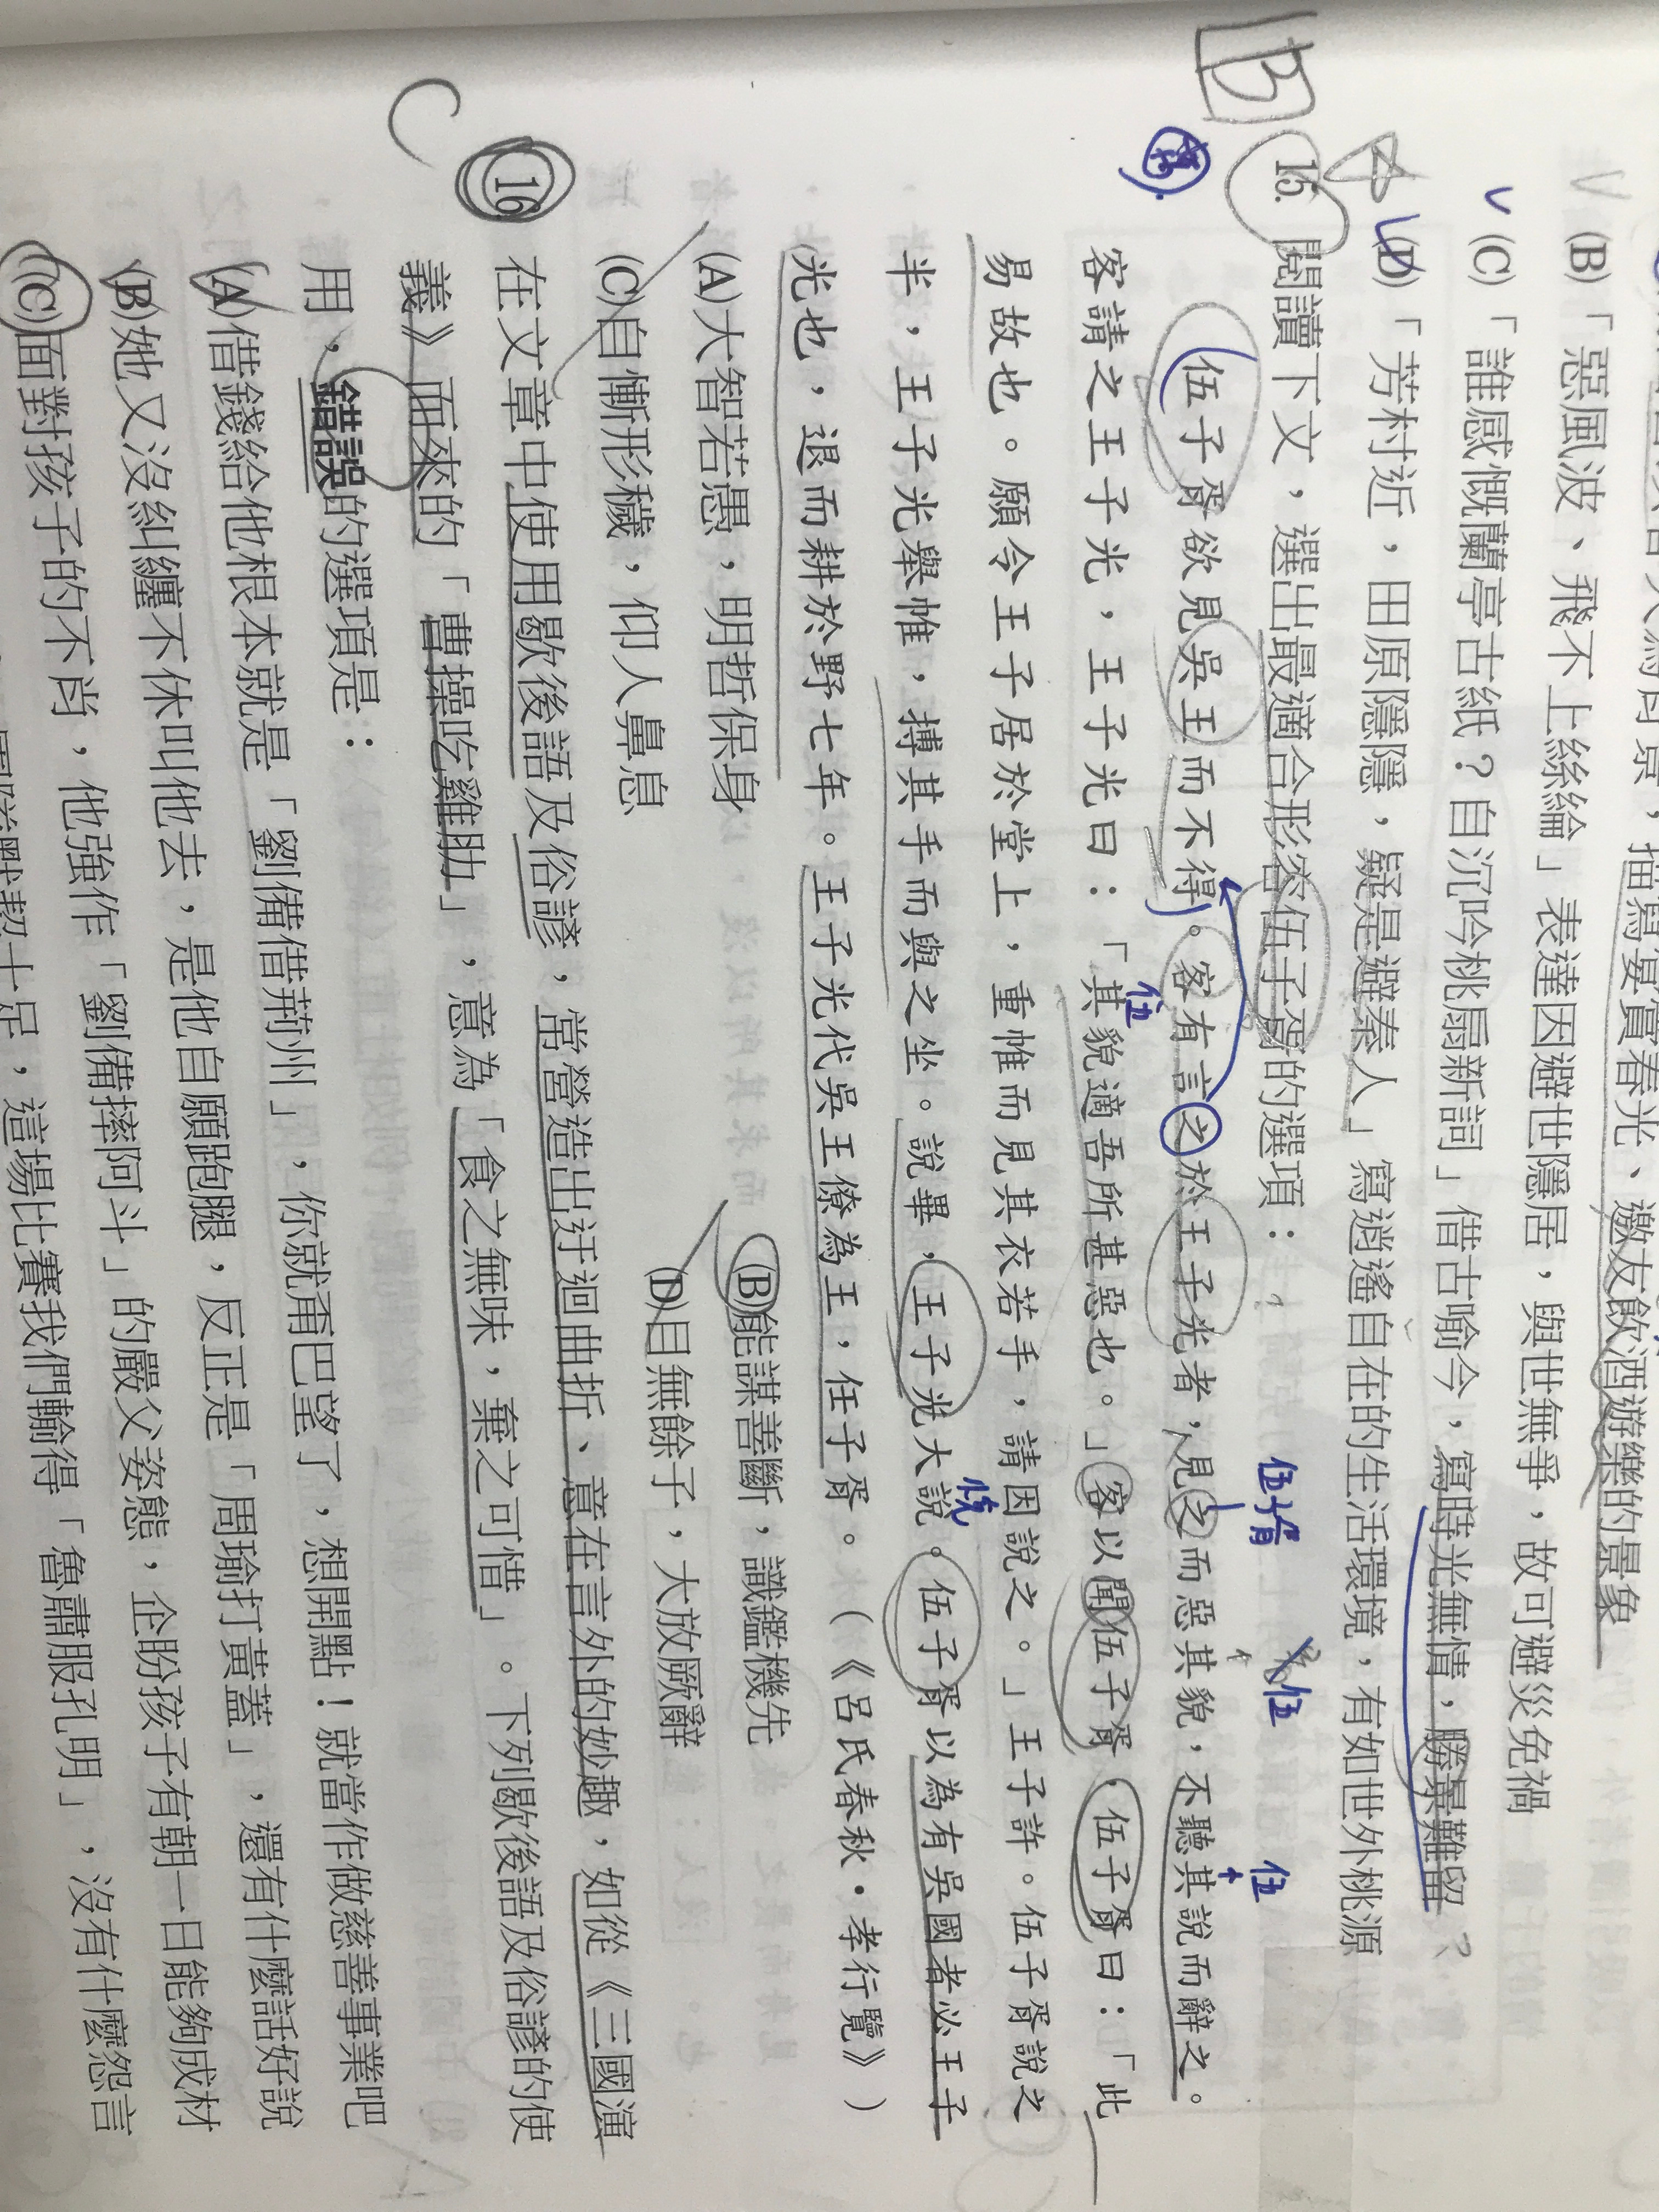 描寫宴賓春光、邀友飲酒遊樂的景象
(B)「惡風波、飛不上絲綸」表達因避世隱居，與世無爭，故可避災免禍
(C)「誰感慨蘭亭古紙？自沉吟桃扇新詞」借古喻今，寫時光無情，勝景難留？
(D)「芳村近，田原隱隱，疑是避秦人」寫逍遙自在的生活環境，有如世外桃源
B
15. 閱讀下文，選出最適合形容伍子胥的選項：
伍子胥 伍 伍
伍子胥欲見吳王而不得。客有言之於王子光者，見之而惡其貌，不聽其說而辭之。
伍
客請之王子光，王子光曰：「其貌適吾所甚惡也。」客以聞伍子胥，伍子胥曰：「此
易故也。願令王子居於堂上，重帷而見其衣若手，請因說之。」王子許。伍子胥說之
半，王子光舉帷，搏其手而與之坐。說畢，王子光大說。伍子胥以為有吳國者必王子
悅
光也，退而耕於野七年。王子光代吳王僚為王，任子胥。（《呂氏春秋·孝行覽》）
(A)大智若愚，明哲保身 (B)能謀善斷，識鑑機先
(C)自慚形穢，仰人鼻息 (D)目無餘子，大放厥辭
C
16 在文章中使用歇後語及俗諺，常營造出迂迴曲折、意在言外的妙趣，如從《三國演
義》而來的「曹操吃雞肋」，意為「食之無味，棄之可惜」。下列歇後語及俗諺的使
用，錯誤的選項是：
(A)借錢給他根本就是「劉備借荊州」，你就甭巴望了，想開點！就當作做慈善事業吧
(B)她又沒糾纏不休叫他去，是他自願跑腿，反正是「周瑜打黃蓋」，還有什麼話好說
(C)面對孩子的不肖，他強作「劉備摔阿斗」的嚴父姿態，企盼孩子有朝一日能夠成材
足，這場比賽我們輸得「魯肅服孔明」，沒有什麼怨言